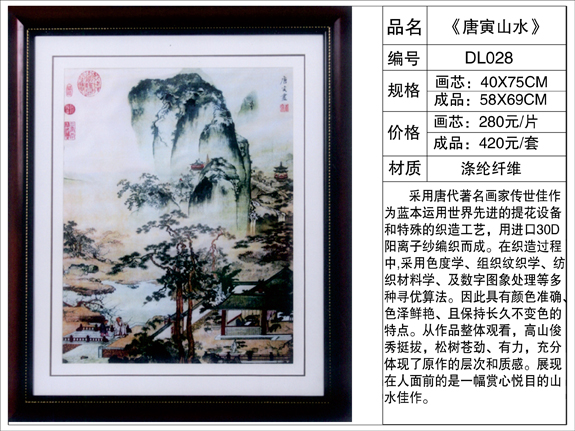 品名 《唐寅山水》
编号 DL028
规格 画芯：40X75CM
成品：58X69CM
价格 画芯：280元/片
成品：420元/套
材质 涤纶纤维
采用唐代著名画家传世佳作
为蓝本运用世界先进的提花设备
和特殊的织造工艺，用进口30D
阳离子纱编织而成。在织造过程
中,采用色度学、组织纹织学、纺
织材料学、及数字图象处理等多
种寻优算法。因此具有颜色准确、
色泽鲜艳、且保持长久不变色的
特点。从作品整体观看，高山俊
秀挺拔，松树苍劲、有力，充分
体现了原作的层次和质感。展现
在人面前的是一幅赏心悦目的山
水佳作。